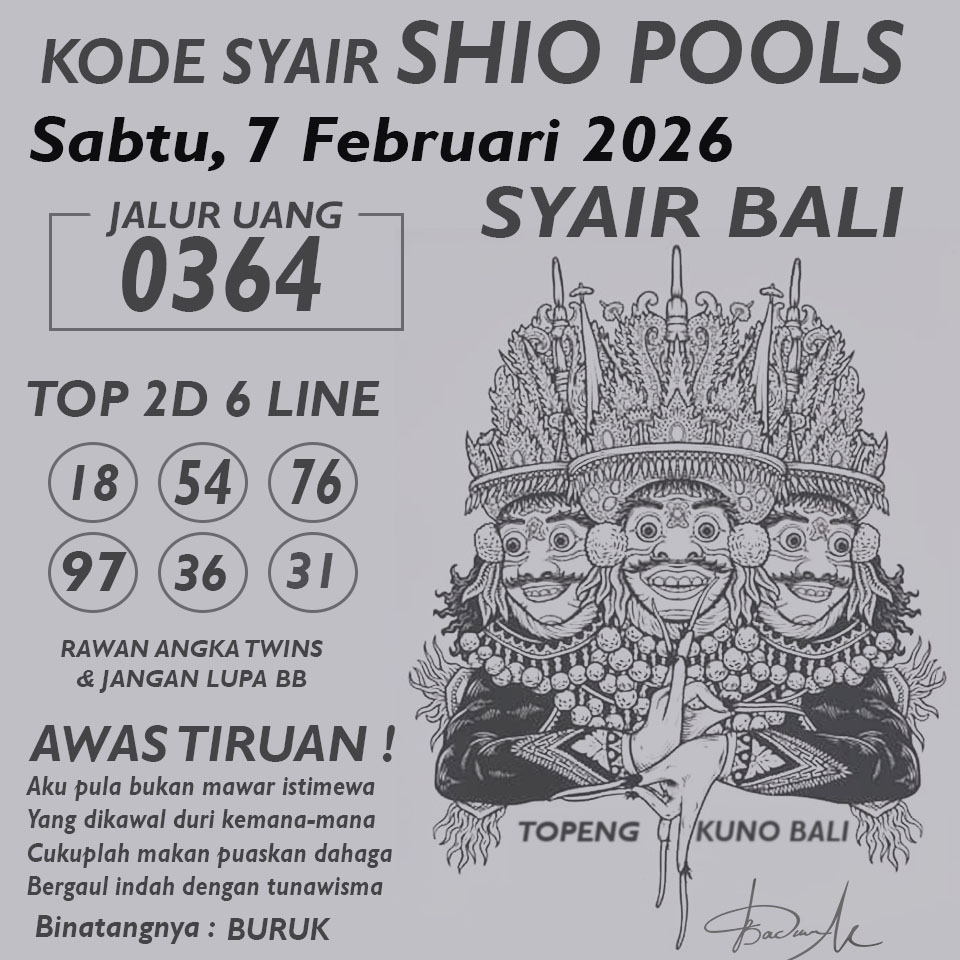 KODE SYAIR SHIO POOLS
Sabtu, 7 Februari 2026
SYAIR BALI
JALUR UANG
0364
TOP 2D 6 LINE
18 54 76
97 36 31
RAWAN ANGKA TWINS
& JANGAN LUPA BB
AWAS TIRUAN !
Aku pula bukan mawar istimewa
Yang dikawal duri kemana-mana
Cukuplah makan puaskan dahaga
Bergaul indah dengan tunawisma
Binatangnya : BURUK
TOPENG KUNO BALI